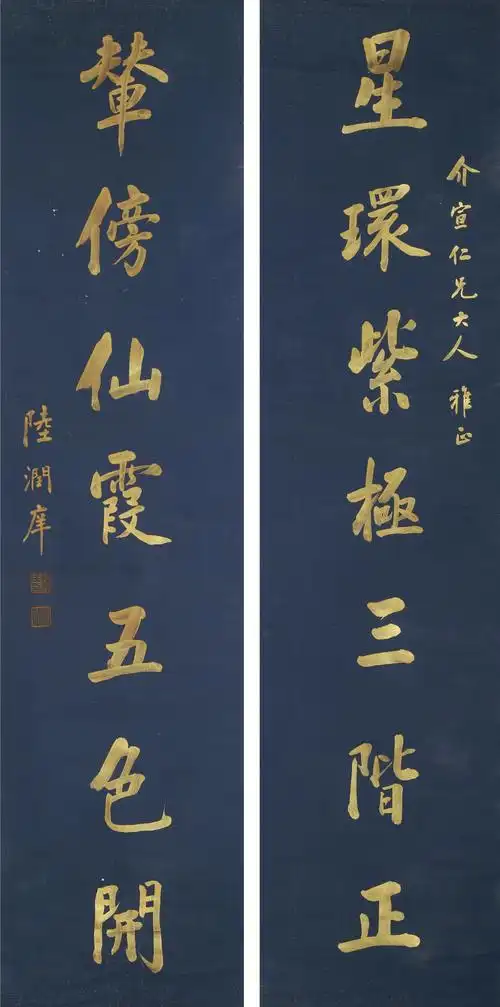 介宣仁兄大人 雅正
星環紫極三階正
輦傍仙霞五色開
陸潤庠